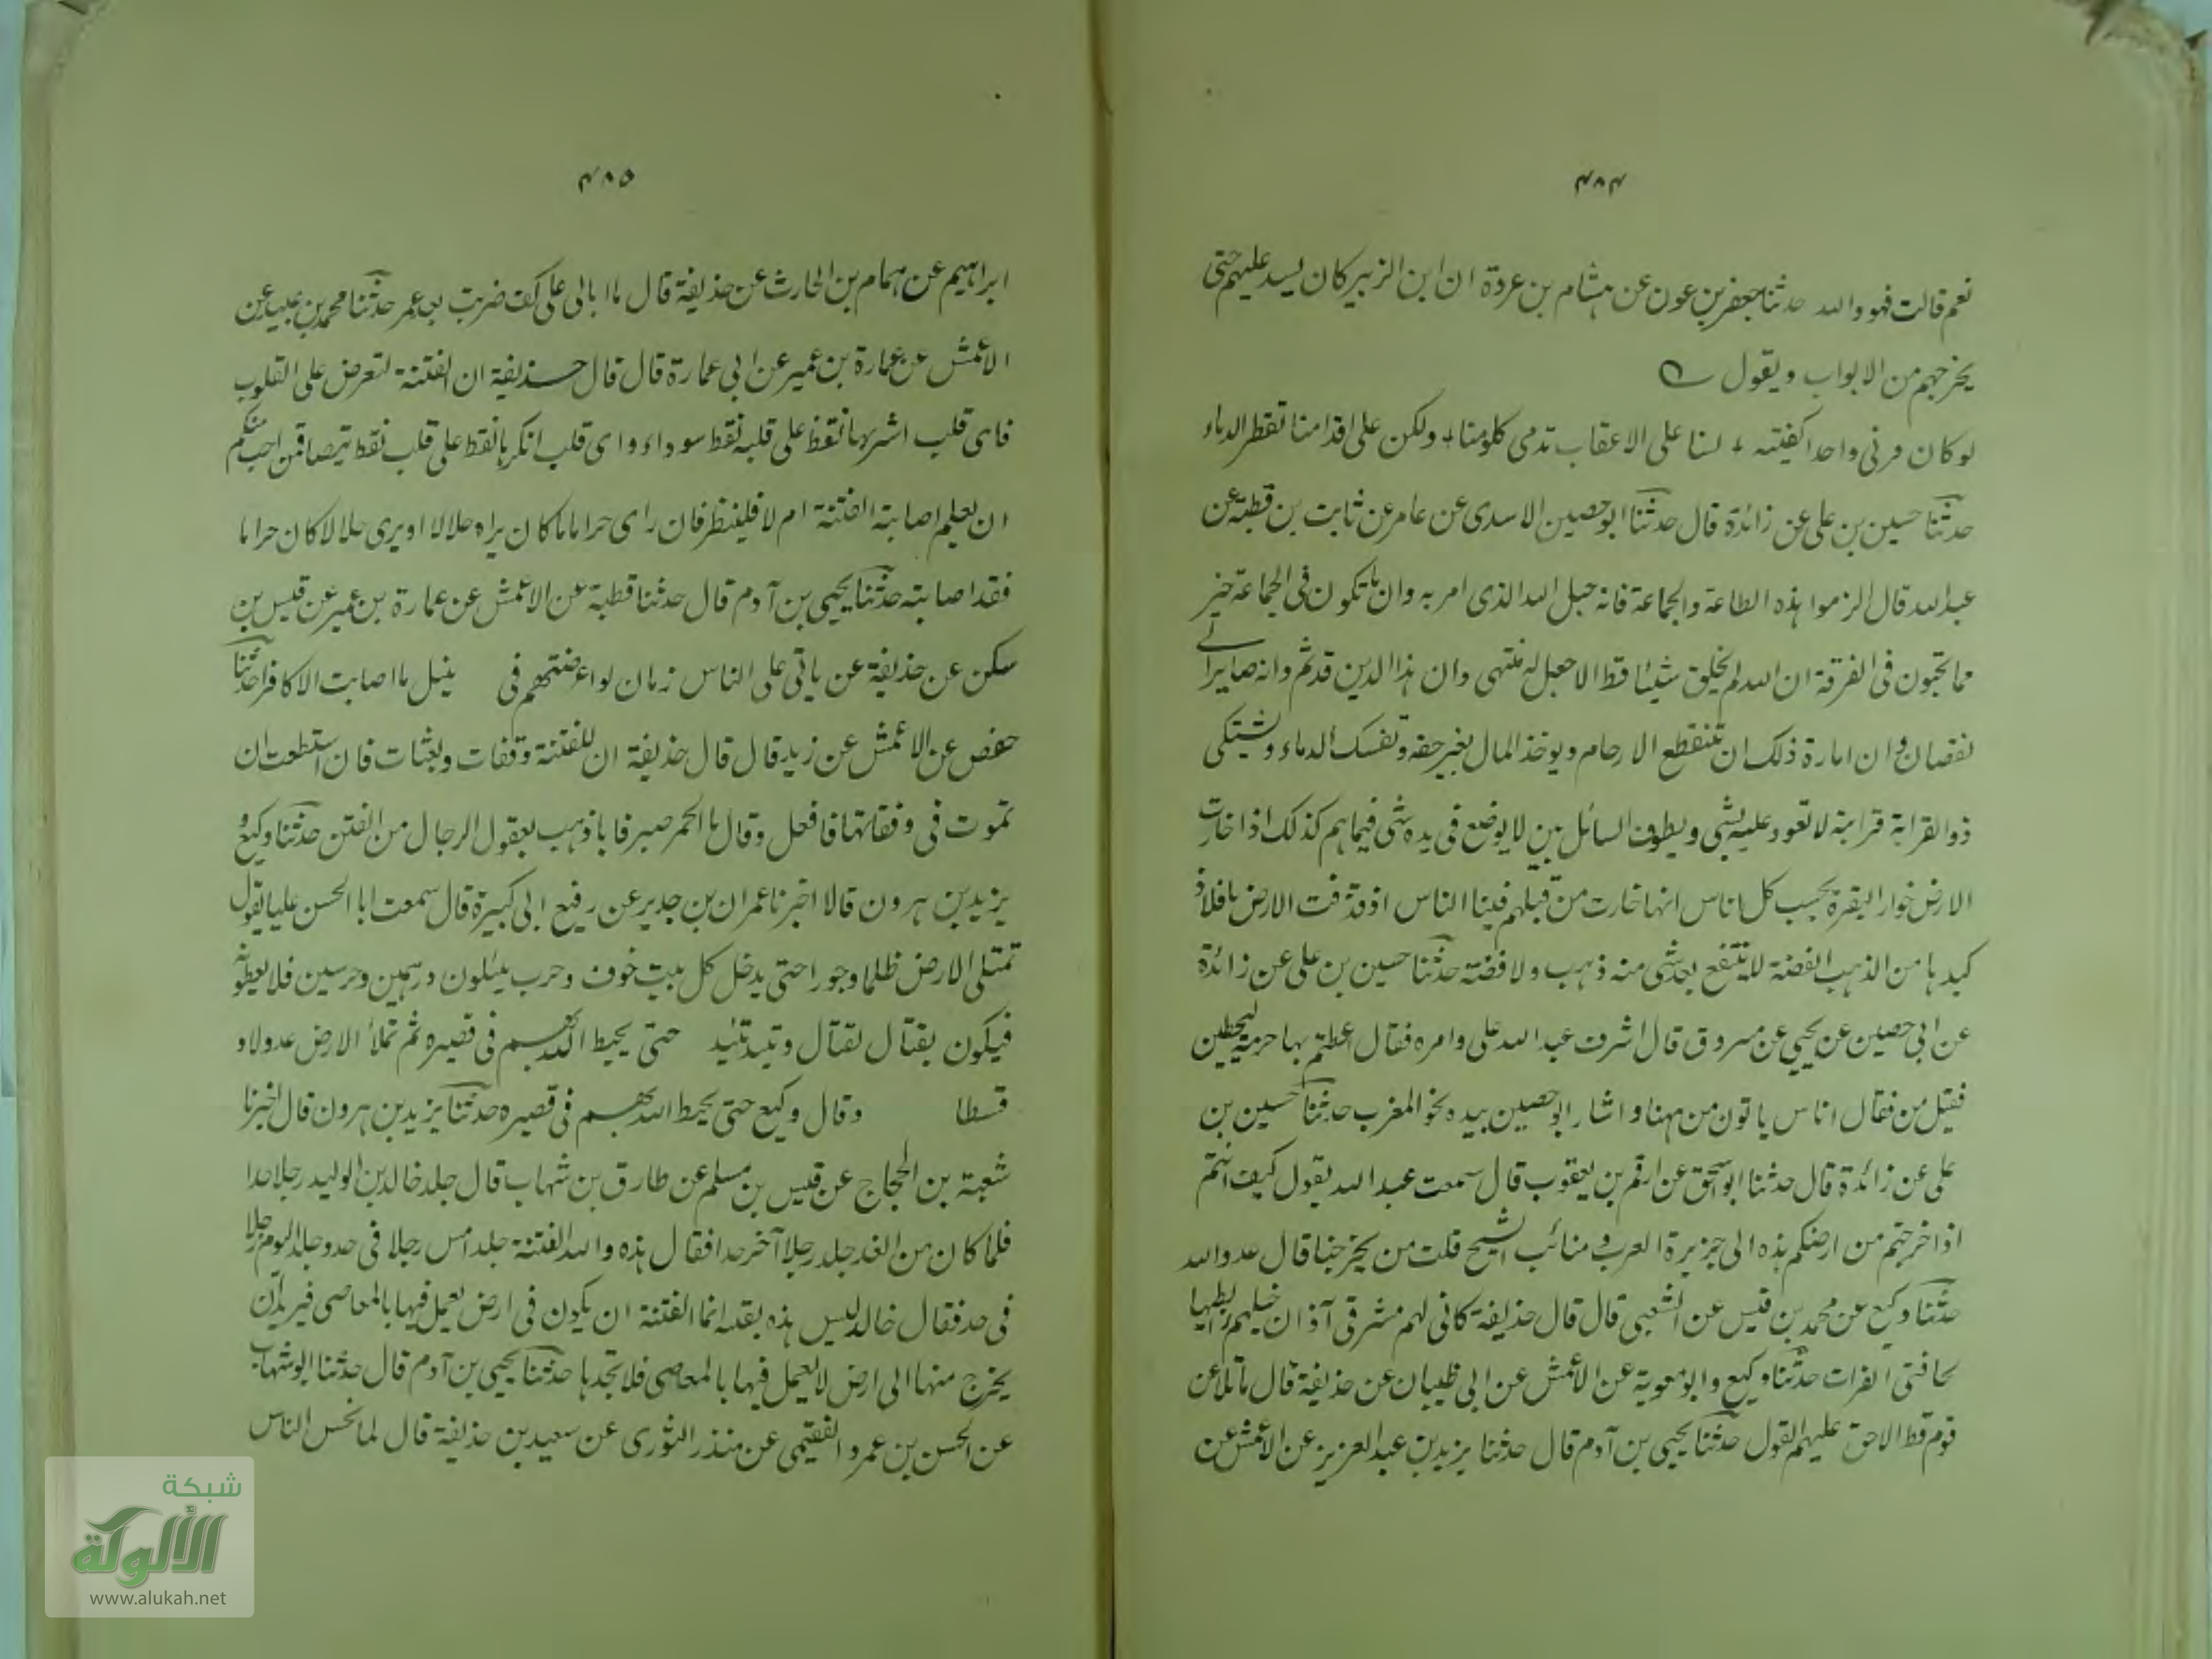 ٤٨٤
نعم قالت فهو والله حدثنا جعفر بن عون عن هشام بن عروة ان ابن الزبير كان يسد عليهم حتى
يخرجهم من الابواب ويقول
لو كان قرنى واحدا كفيته + لسنا على الاعقاب تدمى كلومنا + ولكن على اقدامنا تقطر الدماء
حدثنا حسين بن على عن زائدة قال حدثنا ابو حصين الاسدى عن عامر عن ثابت بن قطبة عن
عبدالله قال الزموا هذه الطاعة والجماعة فانه حبل الله الذى امر به وان ما تكون فى الجماعة خير
مما تحبون فى الفرقة ان الله لم يخلق شيئا قط الا جعل له منتهى وان هذا الدين قد تم وانه صاير الى
نقصان وان امارة ذلك ان تنقطع الارحام ويوخذ المال بغير حقه وتفسك الدماء ويشتكى
ذو القرابة قرابة لا تعود عليه بشى ويطوف السائل بين لا يوضع فى يده شى فبينما هم كذلك اذا خارت
الارض خوار البقرة يحسب كل اناس انها خارت من قبلهم فبينا الناس اذ قذفت الارض بافلاذ
كبدها من الذهب الفضة لا ينتفع بعد شى منه ذهب ولا فضة حدثنا حسين بن على عن زائدة
عن ابى حصين عن يحيى عن مسروق قال اشرف عبدالله على وامره فقال اعظتم بها حرمة ليحظين
فقيل من فقال اناس ياتون من ههنا واشار ابو حصين بيده نحو المغرب حدثنا حسين بن
على عن زائدة قال حدثنا ابو اسحق عن ارقم بن يعقوب قال سمعت عبد الله يقول كيف انتم
اذا خرجتم من ارضكم هذه الى جزيرة العرب ومنائب الشيح قلت من يخرجنا قال عدو الله
حدثنا وكيع عن محمد بن قيس عن الشعبى قال قال حذيفة كانى لهم مشرقى آذان خيلهم رابطيها
بحافتى الفرات حدثنا وكيع وابو معوية عن الاعمش عن ابى ظبيان عن حذيفة قال ما تلاعن
قوم قط الا حق عليهم القول حدثنا يحيى بن آدم قال حدثنا يزيد بن عبد العزيز عن الاعمش عن
٤٨٥
ابراهيم عن همام بن الحارث عن حذيفة قال ما ابالى على كف ضربت بعد عمر حدثنا محمد بن عبيد عن
الاعمش عن عمارة بن عمير عن ابى عمارة قال قال حذيفة ان الفتنة لتعرض على القلوب
فاى قلب اشربها نقط على قلبه نقط سوداء واى قلب انكرها نقط على قلب نقط بيضا فمن احب منكم
ان يعلم اصابته الفتنة ام لا فلينظر فان راى حراما ما كان يراه حلالا او يرى حلالا كان حراما
فقد اصابته حدثنا يحيى بن آدم قال حدثنا قطبة عن الاعمش عن عمارة بن عمير عن قيس بن
سكن عن حذيفة عن ياتى على الناس زمان لو اعرضتهم فى ينبل ما اصابت الا كافرا حدثنا
حفص عن الاعمش عن زيد قال قال حذيفة ان للفتنة وقفات وبعثات فان استطعت ان
تموت فى وقفاتها فافعل وقال ما الخمر صرفا باذهب بعقول الرجال من الفتن حدثنا وكيع و
يزيد بن هرون قالا اخبرنا عمران بن حدير عن رفيع ابى كبيرة قال سمعت ابا الحسن عليا يقول
تمتلى الارض ظلما وجورا حتى يدخل كل بيت خوف وحرب يسئلون درهمين وحرسين فلا يعطونه
فيكون بقتال لقتال حتى يحيط الله بهم فى قصيره ثم تملأ الارض عدولا و
قسطا وقال وكيع حتى يحيط الله بهم فى قصيره حدثنا يزيد بن هرون قال اخبرنا
شعبة بن الحجاج عن قيس بن مسلم عن طارق بن شهاب قال جلد خالد بن الوليد رجلا حدا
فلما كان من الغد جلد رجلا آخر حدا فقال هذه والله الفتنة جلد امس رجلا فى حد وجلد اليوم رجلا
فى حد فقال خالد ليس هذه بفتنه انما الفتنة ان يكون فى ارض يعمل فيها بالمعاصى فيريد ان
يخرج منها الى ارض لا يعمل فيها بالمعاصى فلا تجدها حدثنا يحيى بن آدم قال حدثنا ابو شهاب
عن الحسن بن عمرو الفقيمى عن منذر الثورى عن سعيد بن حذيفة قال لما نحس الناس
شبكة
الألوكة
www.alukah.net